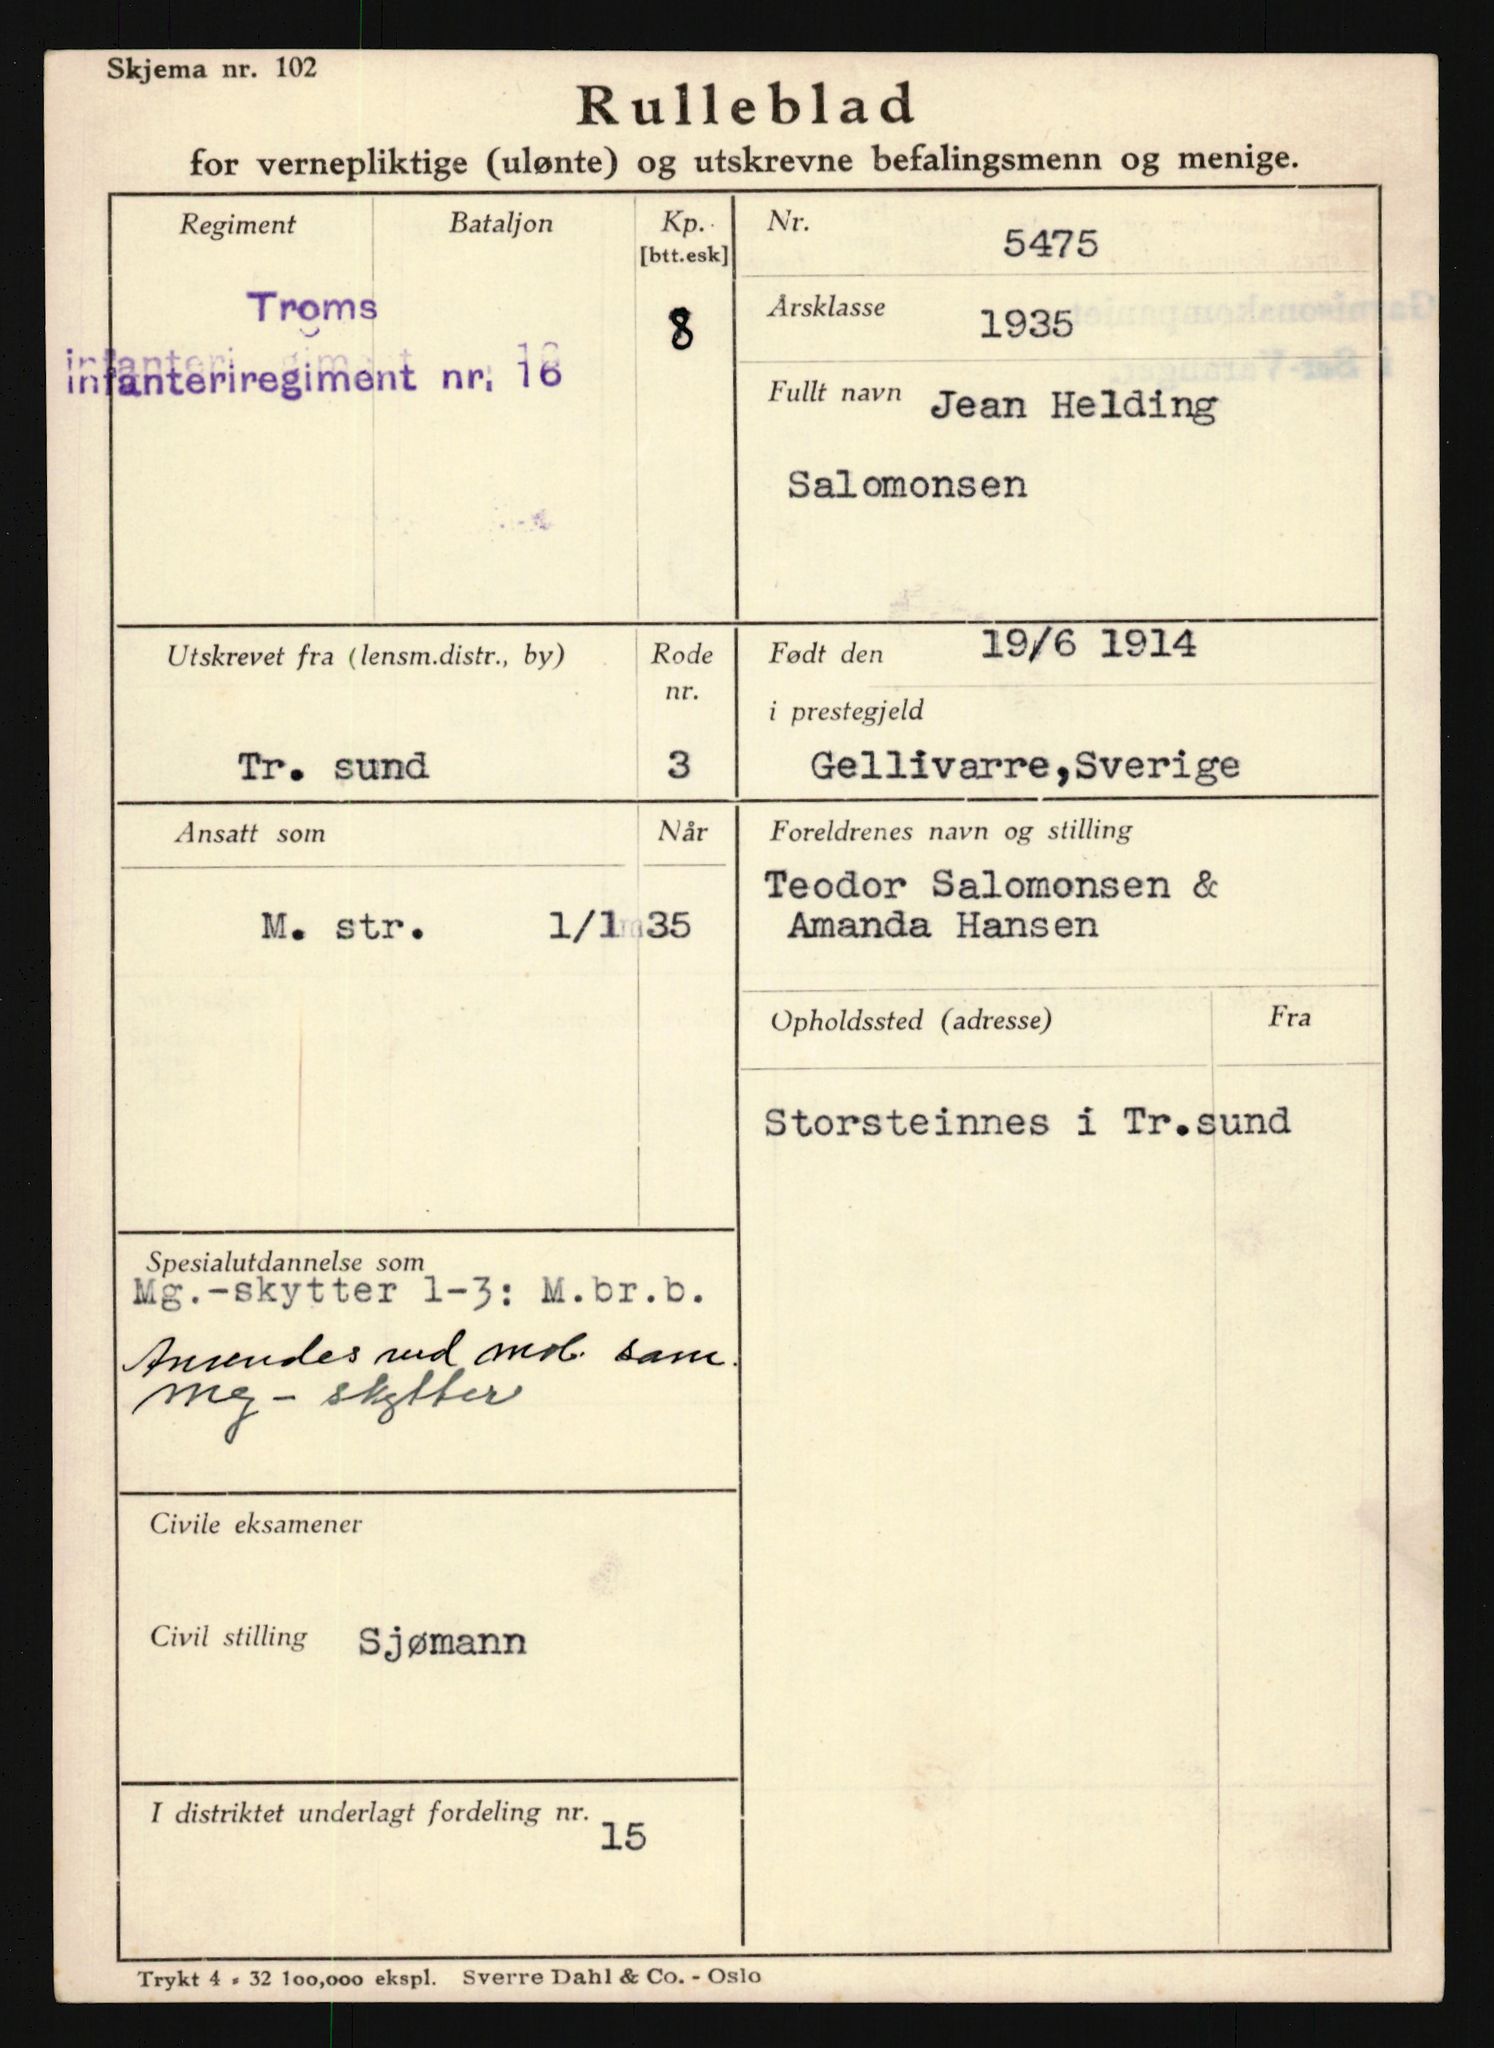 Skjema nr. 102
Rulleblad
for vernepliktige (ulønte) og utskrevne befalingsmenn og menige.
Regiment
Bataljon
Kp.
[btt.esk]
Troms
infanteriregiment nr. 16
8
Nr.
5475
Årsklasse
1935
Fullt navn Jean Helding
Salomonsen
Utskrevet fra (lensm.distr., by)
Rode
nr.
Tr. sund
3
Født den 19/6 1914
i prestegjeld
Gellivarre,Sverige
Ansatt som
Når
M. str. 1/1 35
Foreldrenes navn og stilling
Teodor Salomonsen &
Amanda Hansen
Opholdssted (adresse)
Fra
Storsteinnes i Tr.sund
Spesialutdannelse som
Mg.-skytter 1-3: M.br.b.
Anvendes ved mob. som
mg - skytter
Civile eksamener
Civil stilling Sjømann
I distriktet underlagt fordeling nr.
15
Trykt 4 - 32 100,000 ekspl. Sverre Dahl & Co. - Oslo